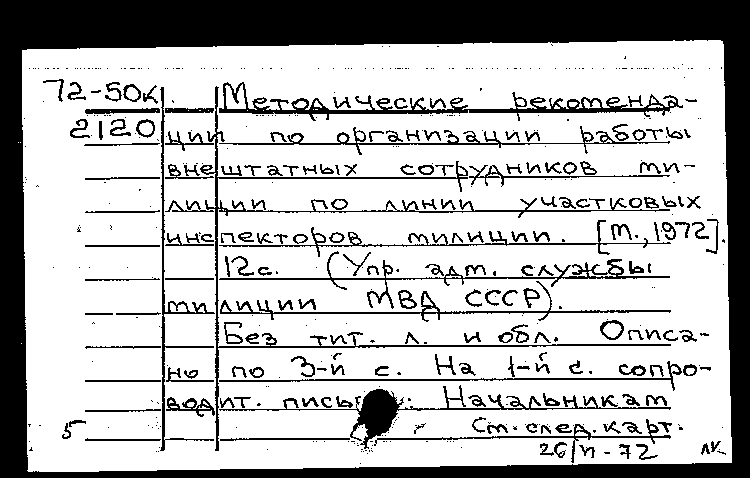 72-50к. Методические рекоменда-
2120 ции по организации работы
внештатных сотрудников ми-
лиции по линии участковых
инспекторов милиции. [М., 1972].
12 с. (Упр. адм. службы
милиции МВД СССР).
Без тит. л. и обл. Описа-
но по 3-й с. На 1-й с. сопро-
водит. : Начальникам
5 См. след. карт.